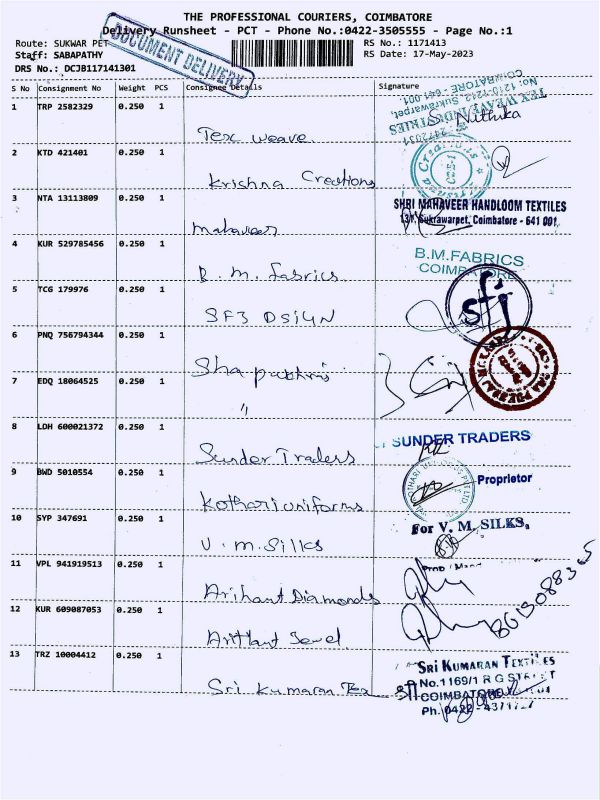 THE PROFESSIONAL COURIERS, COIMBATORE
Delivery Runsheet - PCT - Phone No.:0422-3505555 - Page No.:1
Route: SUKWAR PET
RS No.: 1171413
Staff: SABAPATHY
RS Date: 17-May-2023
DRS No.: DCJB117141301
DOCUMENT DELIVERY
S No Consignment No Weight PCS Consignee Details Signature
1 TRP 2582329 0.250 1
Tex weave
S. Nithika
TEX WEAVE INDUSTRIES
No: 1210-1212, Sukrawarpet,
COIMBATORE - 641 001.
2 KTD 421401 0.250 1
Krishna Creations
3 NTA 13113809 0.250 1
Mahaveer
SHRI MAHAVEER HANDLOOM TEXTILES
137, Sukrawarpet, Coimbatore - 641 001.
4 KUR 529785456 0.250 1
B. m. fabrics
B.M.FABRICS
COIMBATORE
5 TCG 179976 0.250 1
SFJ DSiGN
sfj
6 PNQ 756794344 0.250 1
7 EDQ 18064525 0.250 1
"
8 LDH 600021372 0.250 1
Sunder Traders
SUNDER TRADERS
Proprietor
9 BWD 5010554 0.250 1
Kothari uniforms
10 SYP 347691 0.250 1
V. m. Silks
For V. M. SILKS,
11 VPL 941919513 0.250 1
Arihant Diamonds
12 KUR 609087053 0.250 1
Arihant Jewel
13 TRZ 10004412 0.250 1
Sri Kumaran Tex
SRI KUMARAN TEXTILES
No.1169/1 R G STREET
COIMBATORE
Ph. 0422